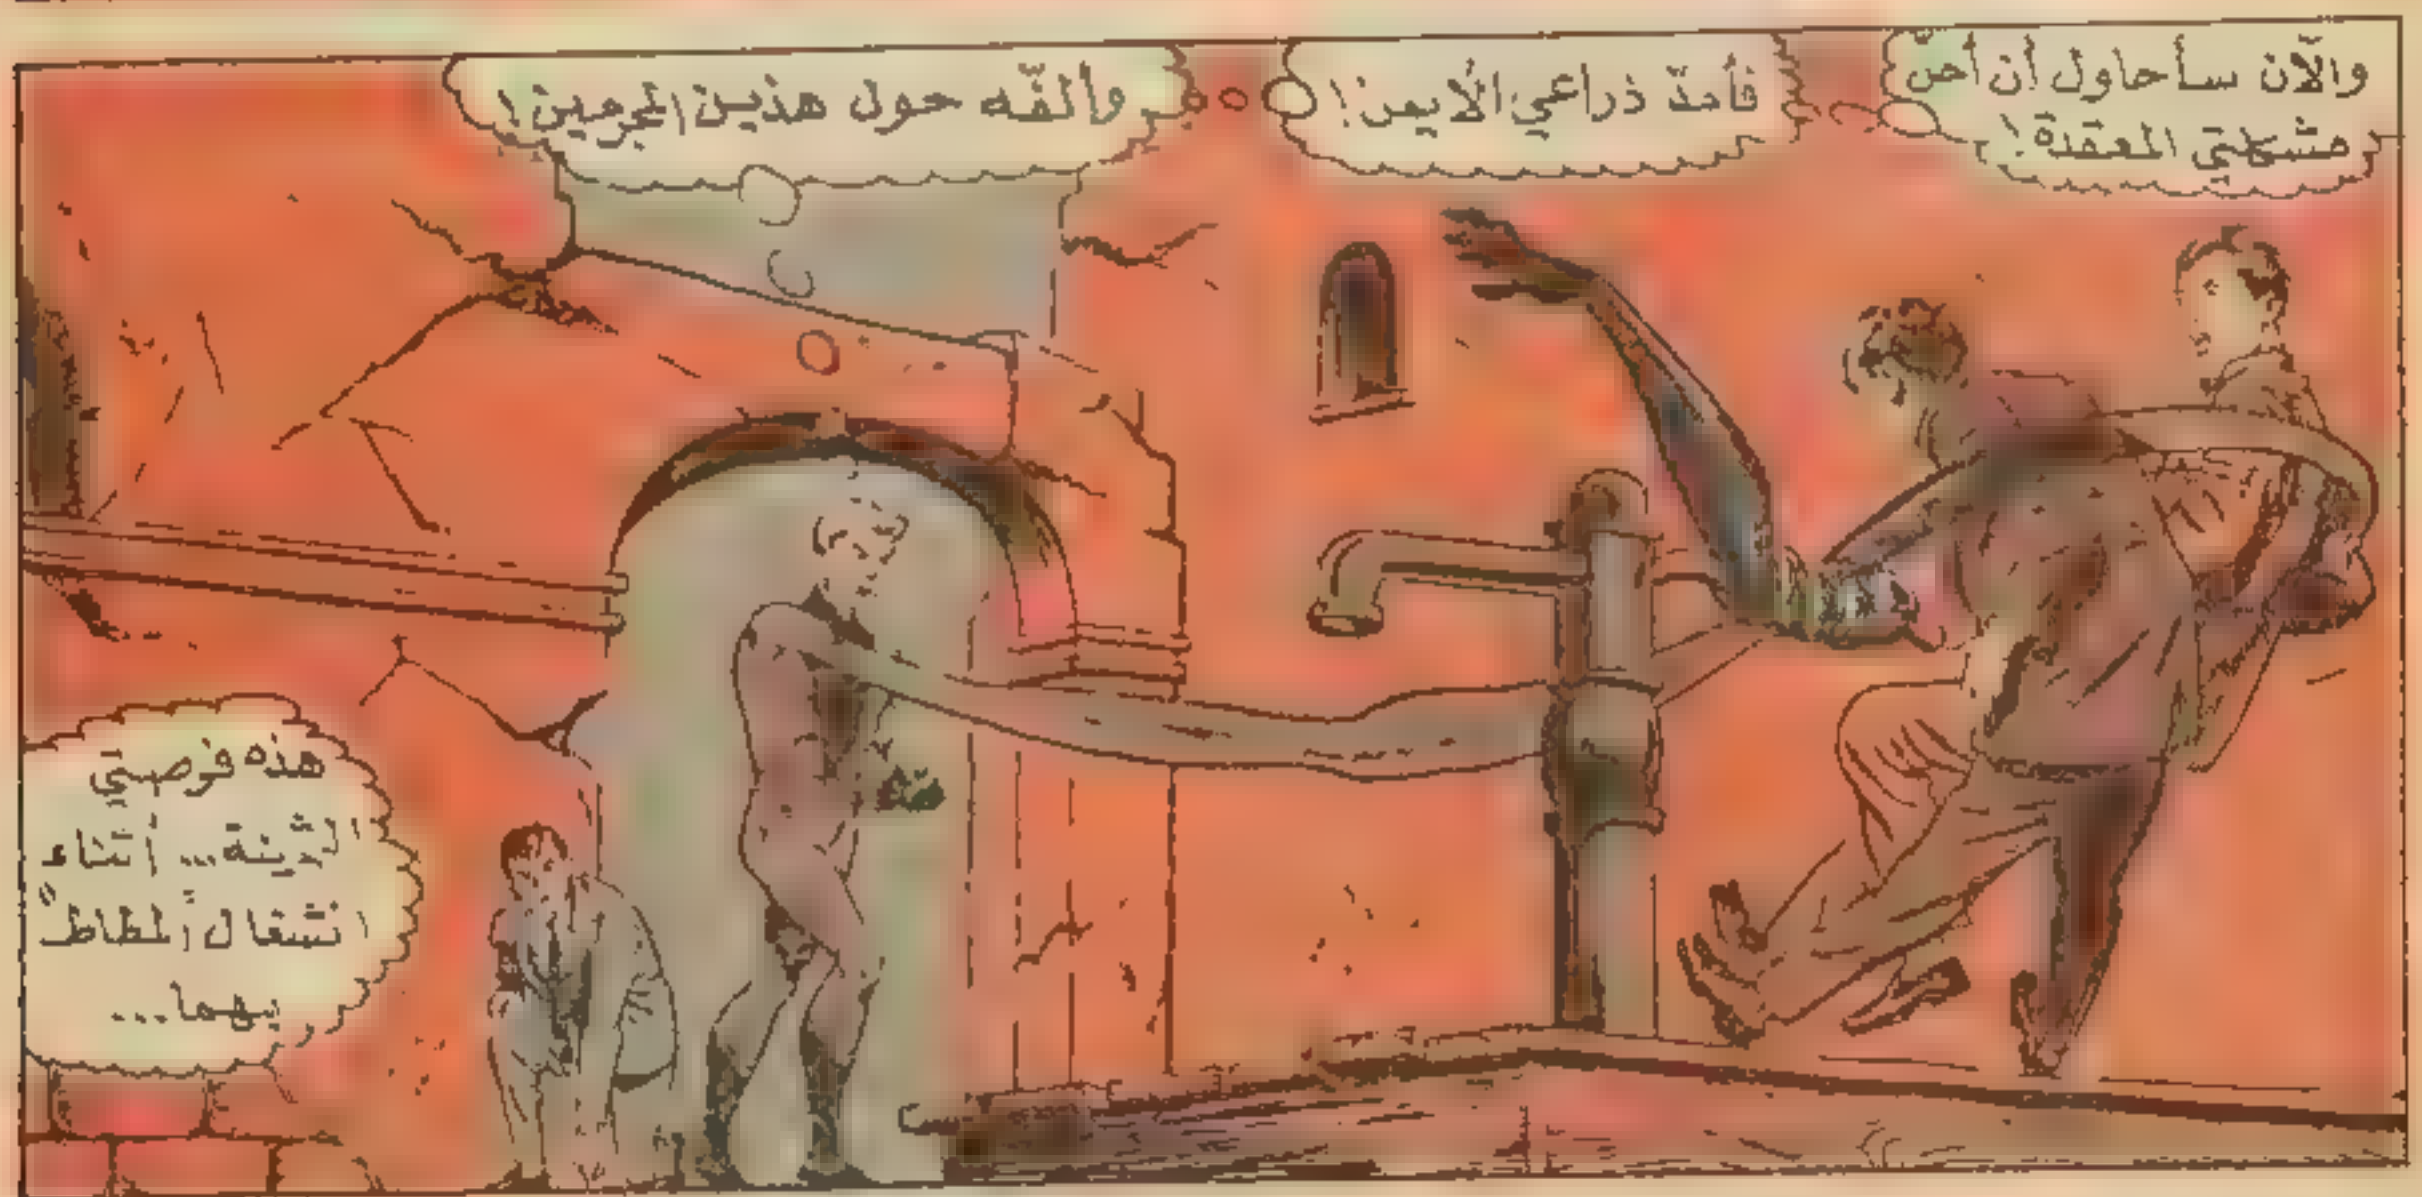 والآن سأحاول أن أحلّ
مشكلتي المعقدة!
فأمدّ ذراعي الأيمن!
وألفّه حول هذين المجرمين!
هذه فرصتي
الثمينة... أثناء
انشغال المطاط
بهما...